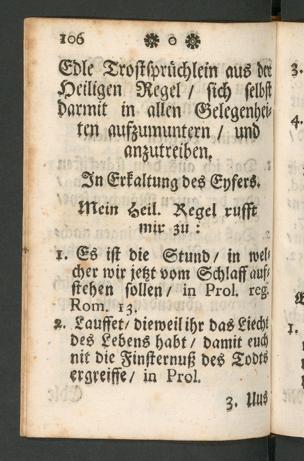 106 ❁ o ❁
Edle Trostsprüchlein aus der
Heiligen Regel / sich selbst
darmit in allen Gelegenhei-
ten aufzumuntern / und
anzutreiben.
In Erkaltung des Eyfers.
Mein Heil. Regel rufft
mir zu :
1. Es ist die Stund / in wel-
cher wir jetzt vom Schlaff auf-
stehen sollen / in Prol. reg.
Rom. 13.
2. Lauffet / dieweil ihr das Liecht
des Lebens habt / damit euch
nit die Finsternuß des Todts
ergreiffe / in Prol.
3. Uns
3.
4.